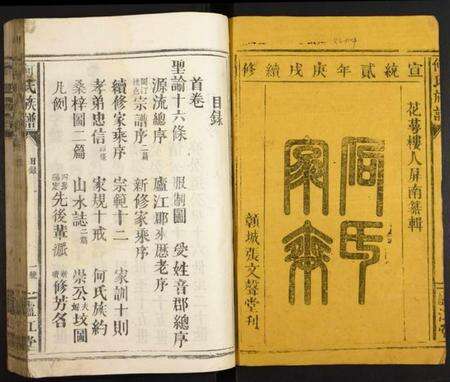 宣統貳年庚戌續修
花萼樓人屏南纂輯
何氏家乘
贛城張文聲堂刊
何氏族譜
目録
首卷
聖諭十六條
服制圖
受姓音郡總序
源流總序
廬江郡
歷老序
宗譜序二篇
新修家乘序
續修家乘序
宗範十二
家訓十則
孝弟忠信
家規十戒
何氏族約
桑梓圖二篇
山水誌二篇
崇公
坟圖
凡例
先後輩
修芳名
氏族譜
目録
廬江堂